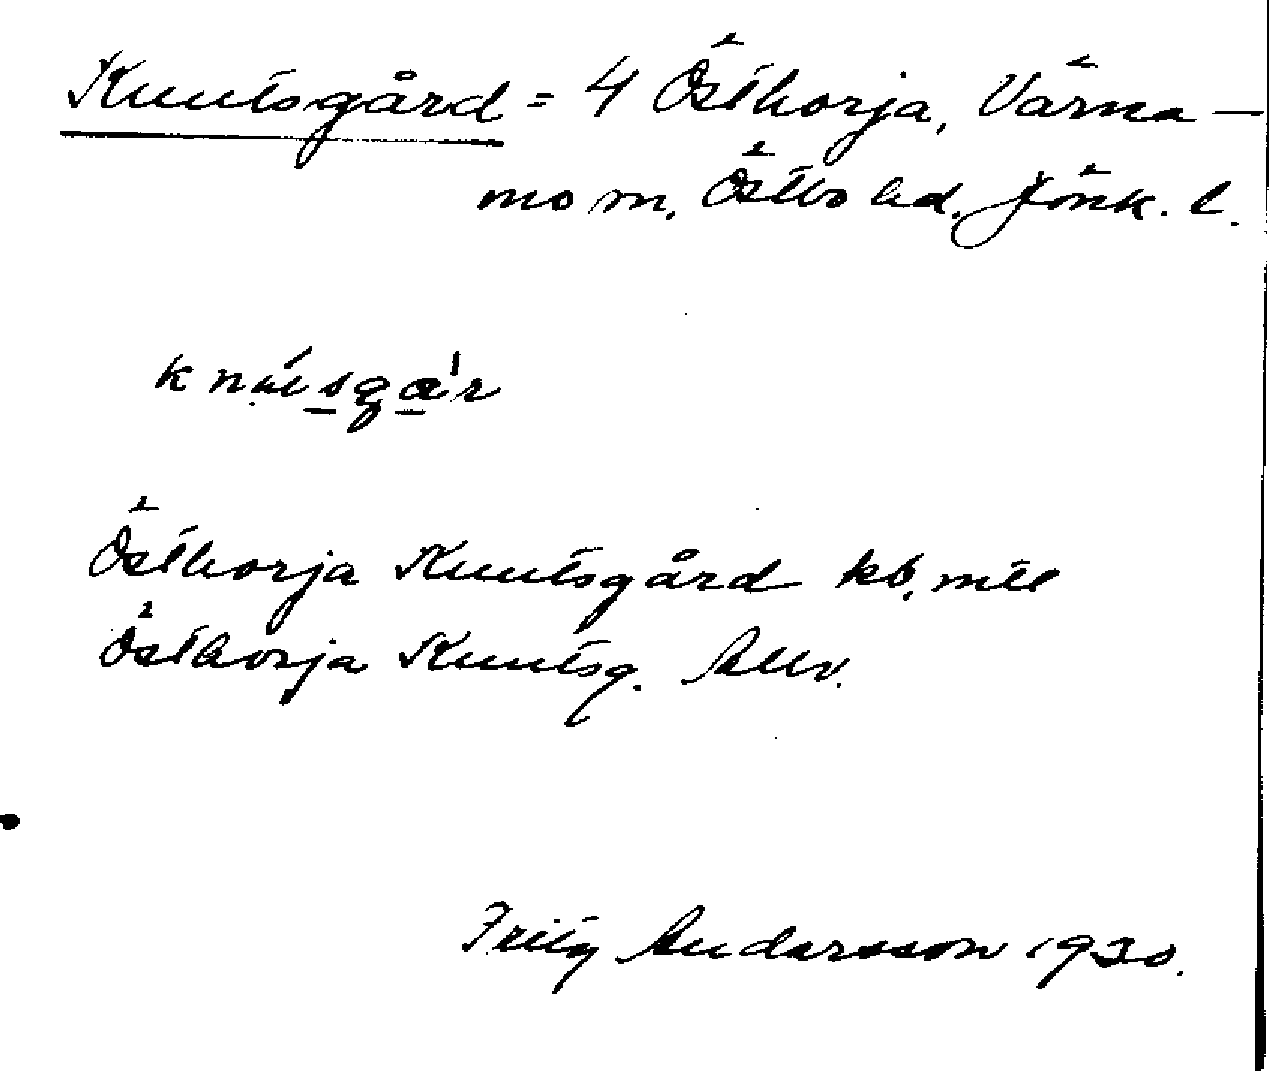 Knutsgård = 4 Östhorja, Värna-
mo m. Östbo hd. Jönk. l.
Östhorja Knutsgård kb, mtl
Östhorja Knutsg. Allv.
Fritz Andersson 1930.